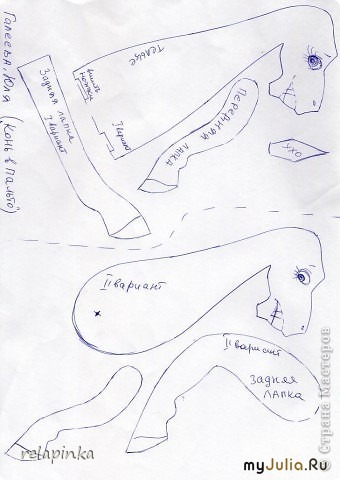 Галеева Юля (Конь в пальто)
Задняя лапка
I вариант
вшить
ножки
тельце
I вариант
Передняя
лапка
ухо
II вариант
II вариант
задняя
лапка
relapinka
myJulia.Ru
© Страна Мастеров